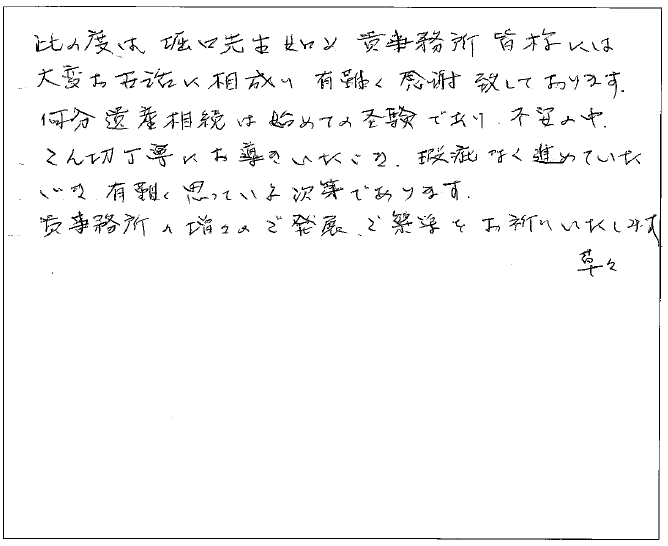 此の度は 堀口先生始め 貴事務所 皆様には
大変お世話に相成り 有難く感謝致しております.
何分遺産相続は始めての経験であり.不安の中.
こん切丁寧にお導きいただき.瑕疵なく進めていた
だき 有難く思っている次第であります.
貴事務所の増々のご発展、ご繁栄をお祈りいたします
草々